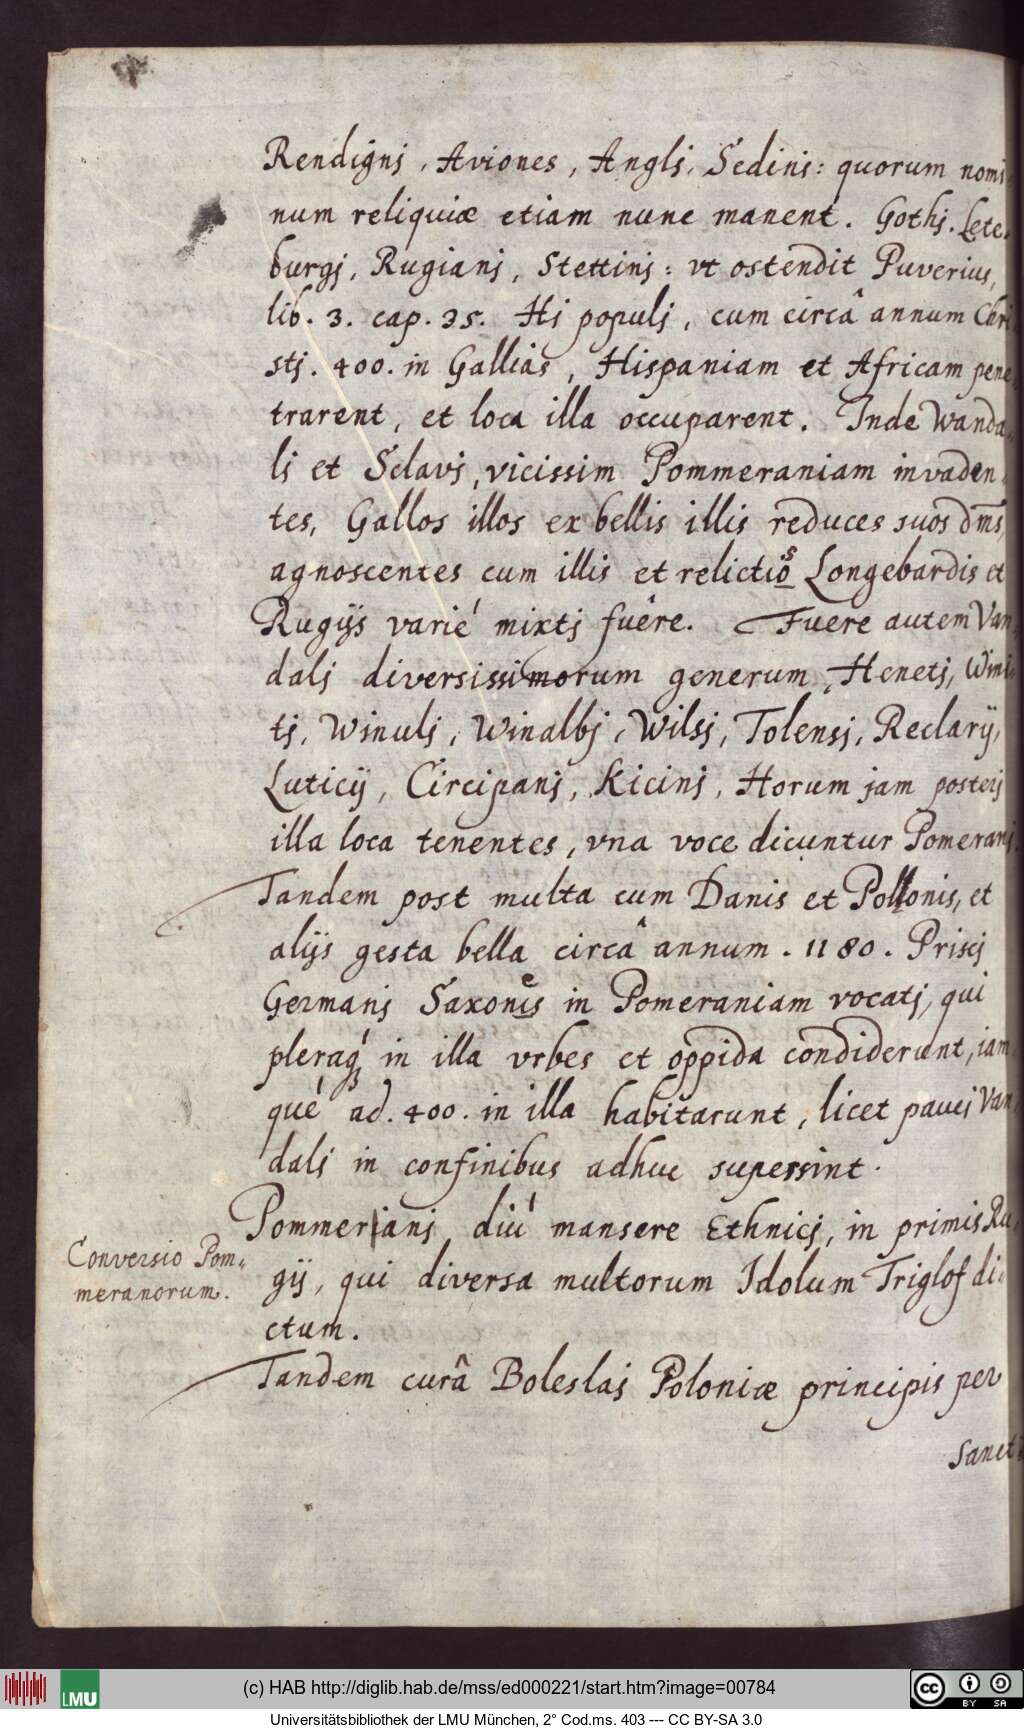 Rendignj, Aviones, Anglj, Sedini: quorum nomi
num reliquiæ etiam nunc manent. Gothj. Lete„
burgj, Rugianj, Stettinj: vt ostendit Puverius,
lib. 3. cap. 35. Hj populj, cum circâ annum Chri
stj. 400. in Gallias, Hispaniam et Africam pene„
trarent, et loca illa occuparent. Inde Wanda„
li et Sclavj, vicissim Pommeraniam invaden„
tes, Gallos illos ex bellis illis reduces suos dm̄s,
agnoscentes cum illis et relictis Longebardis et
Rugijs varié mixtj fuêre. Fuere autem Van„
dalj diversissimorum generum, Henetj, Wini„
tj, Winulj, Winalbj, Wilsj, Tolensj, Reclarÿ,
Luticij, Circipanj, Kicinj, Horum jam posterj
illa loca tenentes, vna voce dicuntur Pomeranj.
Tandem post multa cum Danis et Pollonis, et
alijs gesta bella circâ annum. 1180. Priscj
Germanj Saxones in Pomeraniam vocatj, qui
pleraq́ꝫ in illa vrbes et oppida condiderunt, iam„
qué ad. 400. in illa habitarunt, licet paucj Van„
dalj in confinibus adhuc supersint.
Pommerianj diú mansere Ethnicj, in primis Ru„
gij, qui diversa multorum Idolum Triglof di„
ctum.
Conversio Pom„
meranorum.
Tandem curâ Boleslaj Poloniæ principis per
(c) HAB http://diglib.hab.de/mss/ed000221/start.htm?image=00784
LMU
CC BY SA
Universitätsbibliothek der LMU München, 2° Cod.ms. 403 --- CC BY-SA 3.0